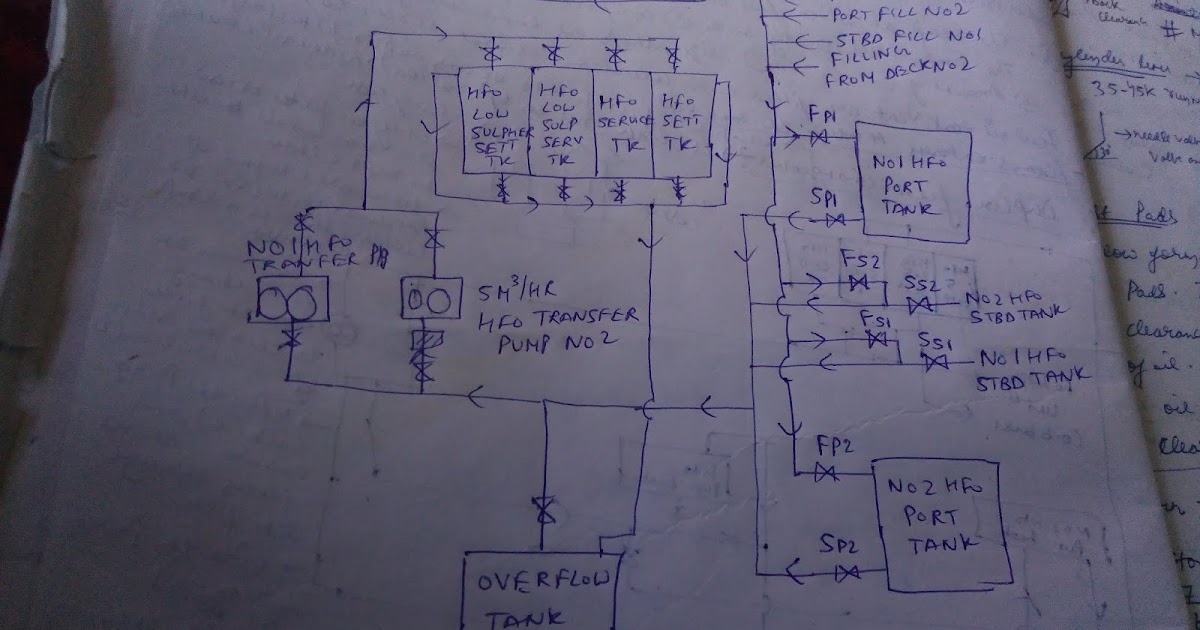 PORT FILL NO2
STBD FILL NO1
FILLING
FROM DECK NO2
HFO
LOW
SULPHER
SETT
TK
HFO
LOW
SULP
SERV
TK
HFO
SERVICE
TK
HFO
SETT
TK
FP1
NO1 HFO
PORT
TANK
SP1
NO1 HFO
TRANFER P/P
5M³/HR
HFO TRANSFER
PUMP NO2
FS2
SS2
NO2 HFO
STBD TANK
FS1
SS1
NO1 HFO
STBD TANK
FP2
NO2 HFO
PORT
TANK
SP2
OVERFLOW
TANK
clearance
#
35-45K
Pads
Pads.
clearance
of oil.
oil